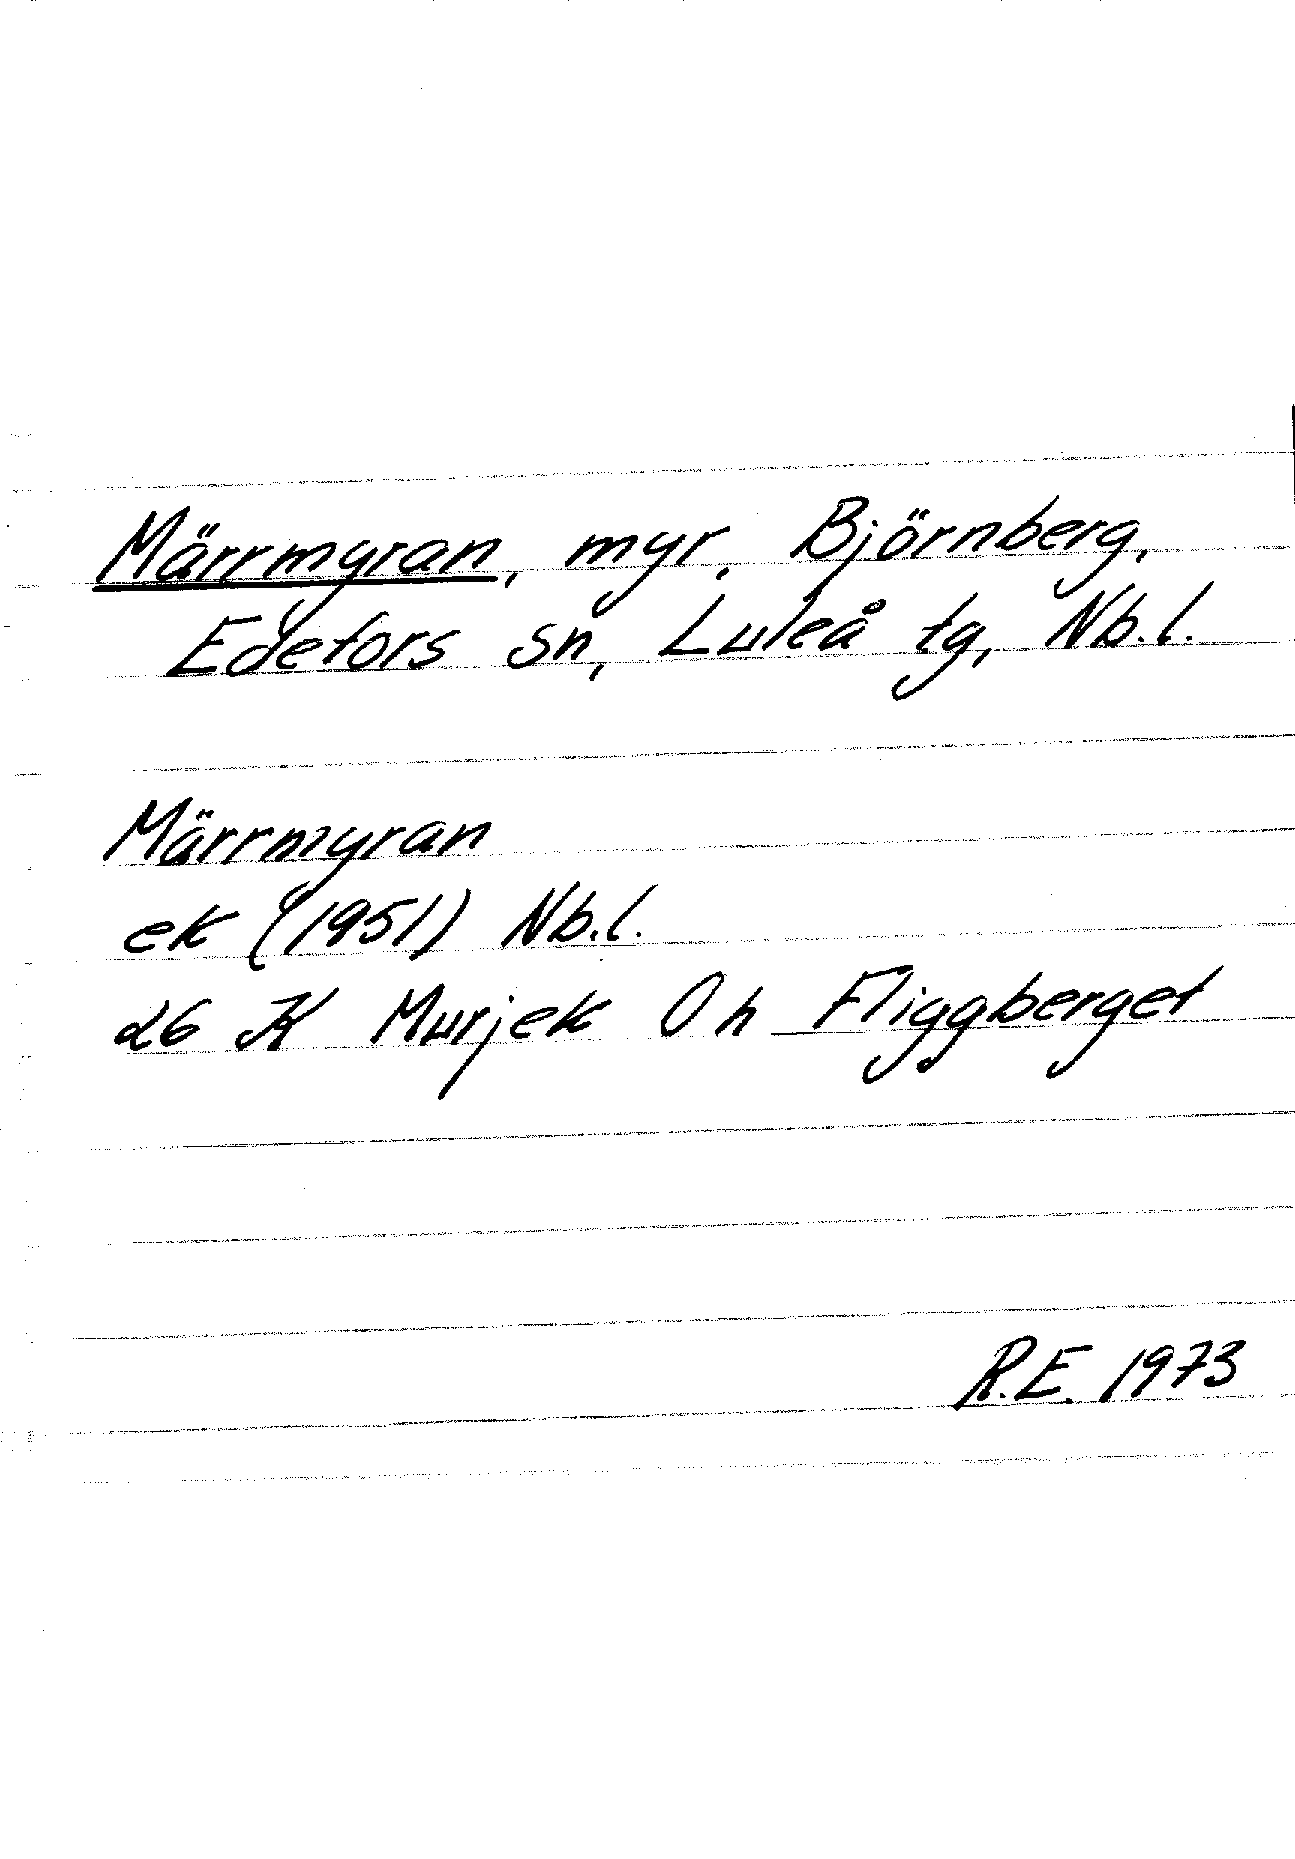 Märrmyran, myr, Björnberg,
Edefors sn, Luleå tg, Nb.l.
Märrmyran
ek (1951) Nb.l.
26 K Murjek 0 h Fliggberget
R.E. 1973